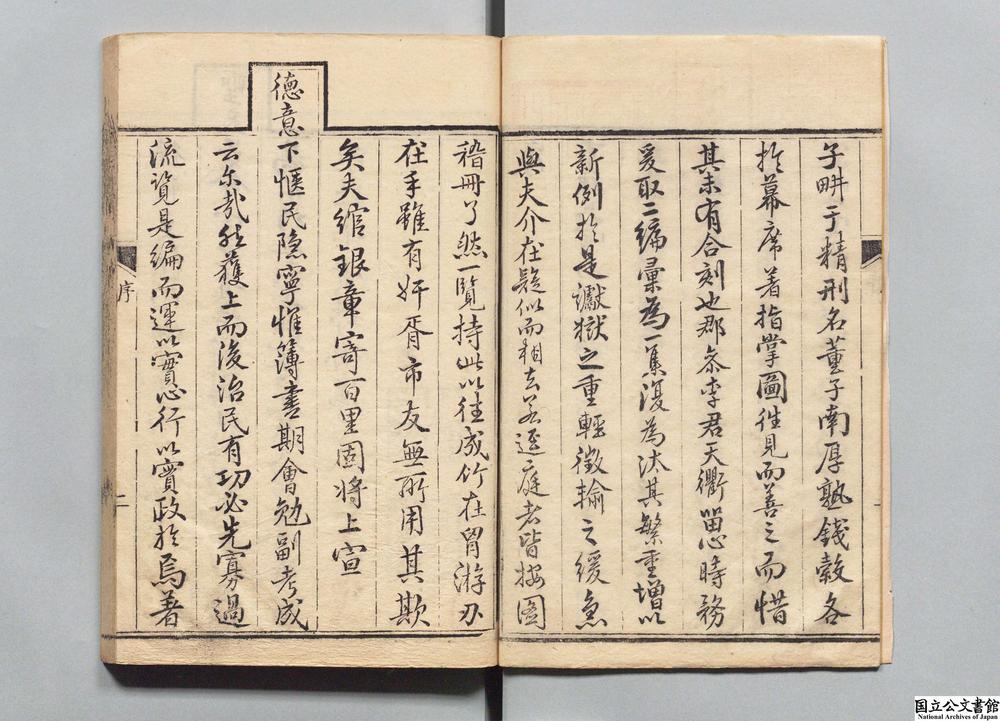 子畊于精刑名董子南厚熟錢穀各
於幕席著指掌圖往見而善之而惜
其未有合刻也郡叅李君天衢留心時務
爰取二編彙為一集復為汰其繁重增以
新例於是讞獄之重輕徵輸之緩急
與夫介在疑似而相去若逕庭者皆按圖
稽冊了然一覽持此以往成竹在胷游刃
在手雖有奸胥市友無所用其欺
矣夫綰銀章寄百里固將上宣
德意下愜民隐寧惟簿書期會勉副考成
云尔哉然獲上而後治民有功必先寡過
流覽是編而運以實心行以實政於焉著
序
二
国立公文書館
National Archives of Japan